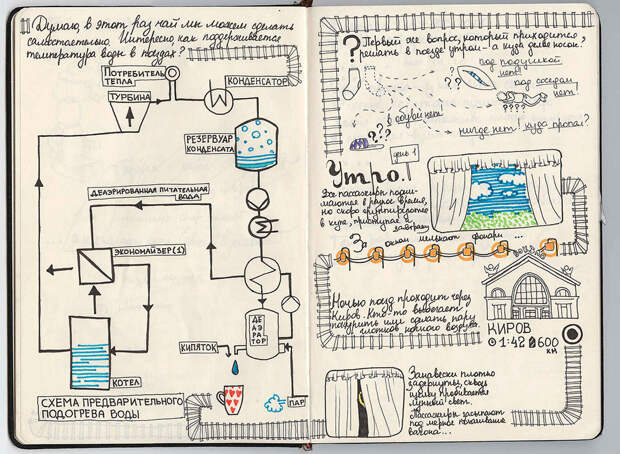 Думаю, в этот раз чай мы можем сделать
самостоятельно. Интересно, как поддерживается
температура воды в поездах?
ПОТРЕБИТЕЛЬ
ТЕПЛА
ТУРБИНА
КОНДЕНСАТОР
РЕЗЕРВУАР
КОНДЕНСАТА
ДЕАЭРИРОВАННАЯ ПИТАТЕЛЬНАЯ
ВОДА
ЭКОНОМАЙЗЕР(1)
ДЕ
АЭ
РА
ТОР
КИПЯТОК
КОТЕЛ
ПАР
СХЕМА ПРЕДВАРИТЕЛЬНОГО
ПОДОГРЕВА ВОДЫ
? Первый же вопрос, который приходится
решать в поезде утром - а куда делся носок?
под подушкой
нет!
???
под соседом
нет!
в обуви нет!
???
нигде нет! куда пропал?
Утро.
день 1
Все пассажиры подни-
маются в разное время,
но скоро
За окном мелькают фонари ...
ВОКЗАЛ
Ночью поезд проходит через
Киров. Кто-то выбегает
покурить или сделать пару
глотков ночного воздуха.
КИРОВ
1:42 600
км
Занавески плотно
задернуты, сквозь
щелку пробивается
лунный свет.
Пассажиры засыпают
под мерное покачивание
вагона...